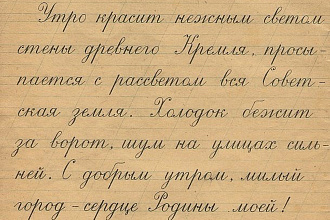 Утро красит нежным светом
стены древнего Кремля, просы-
пается с рассветом вся Совет-
ская земля. Холодок бежит
за ворот, шум на улицах силь-
ней. С добрым утром, милый
город - сердце Родины моей!